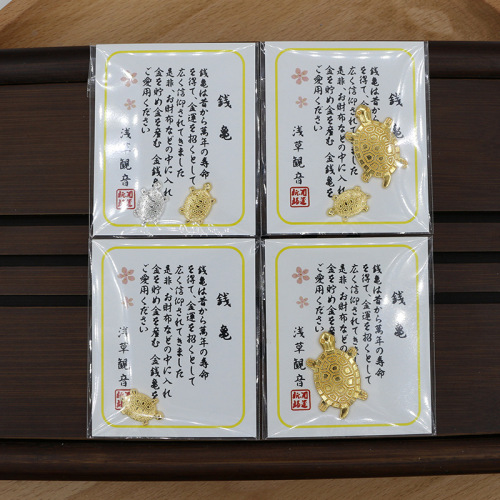 銭亀
銭亀は昔から萬年の寿命
を得て、金運を招くとして
広く信仰されてきました
是非、お財布などの中に入れ
金を貯め金を産む 金銭亀を
ご愛用ください
浅草観音
銭亀
銭亀は昔から萬年の寿命
を得て、金運を招くとして
広く信仰されてきました
是非、お財布などの中に入れ
金を貯め金を産む 金銭亀を
ご愛用ください
浅草観音
銭亀
銭亀は昔から萬年の寿命
を得て、金運を招くとして
広く信仰されてきました
是非、お財布などの中に入れ
金を貯め金を産む 金銭亀を
ご愛用ください
浅草観音
銭亀
銭亀は昔から萬年の寿命
を得て、金運を招くとして
広く信仰されてきました
是非、お財布などの中に入れ
金を貯め金を産む 金銭亀を
ご愛用ください
浅草観音